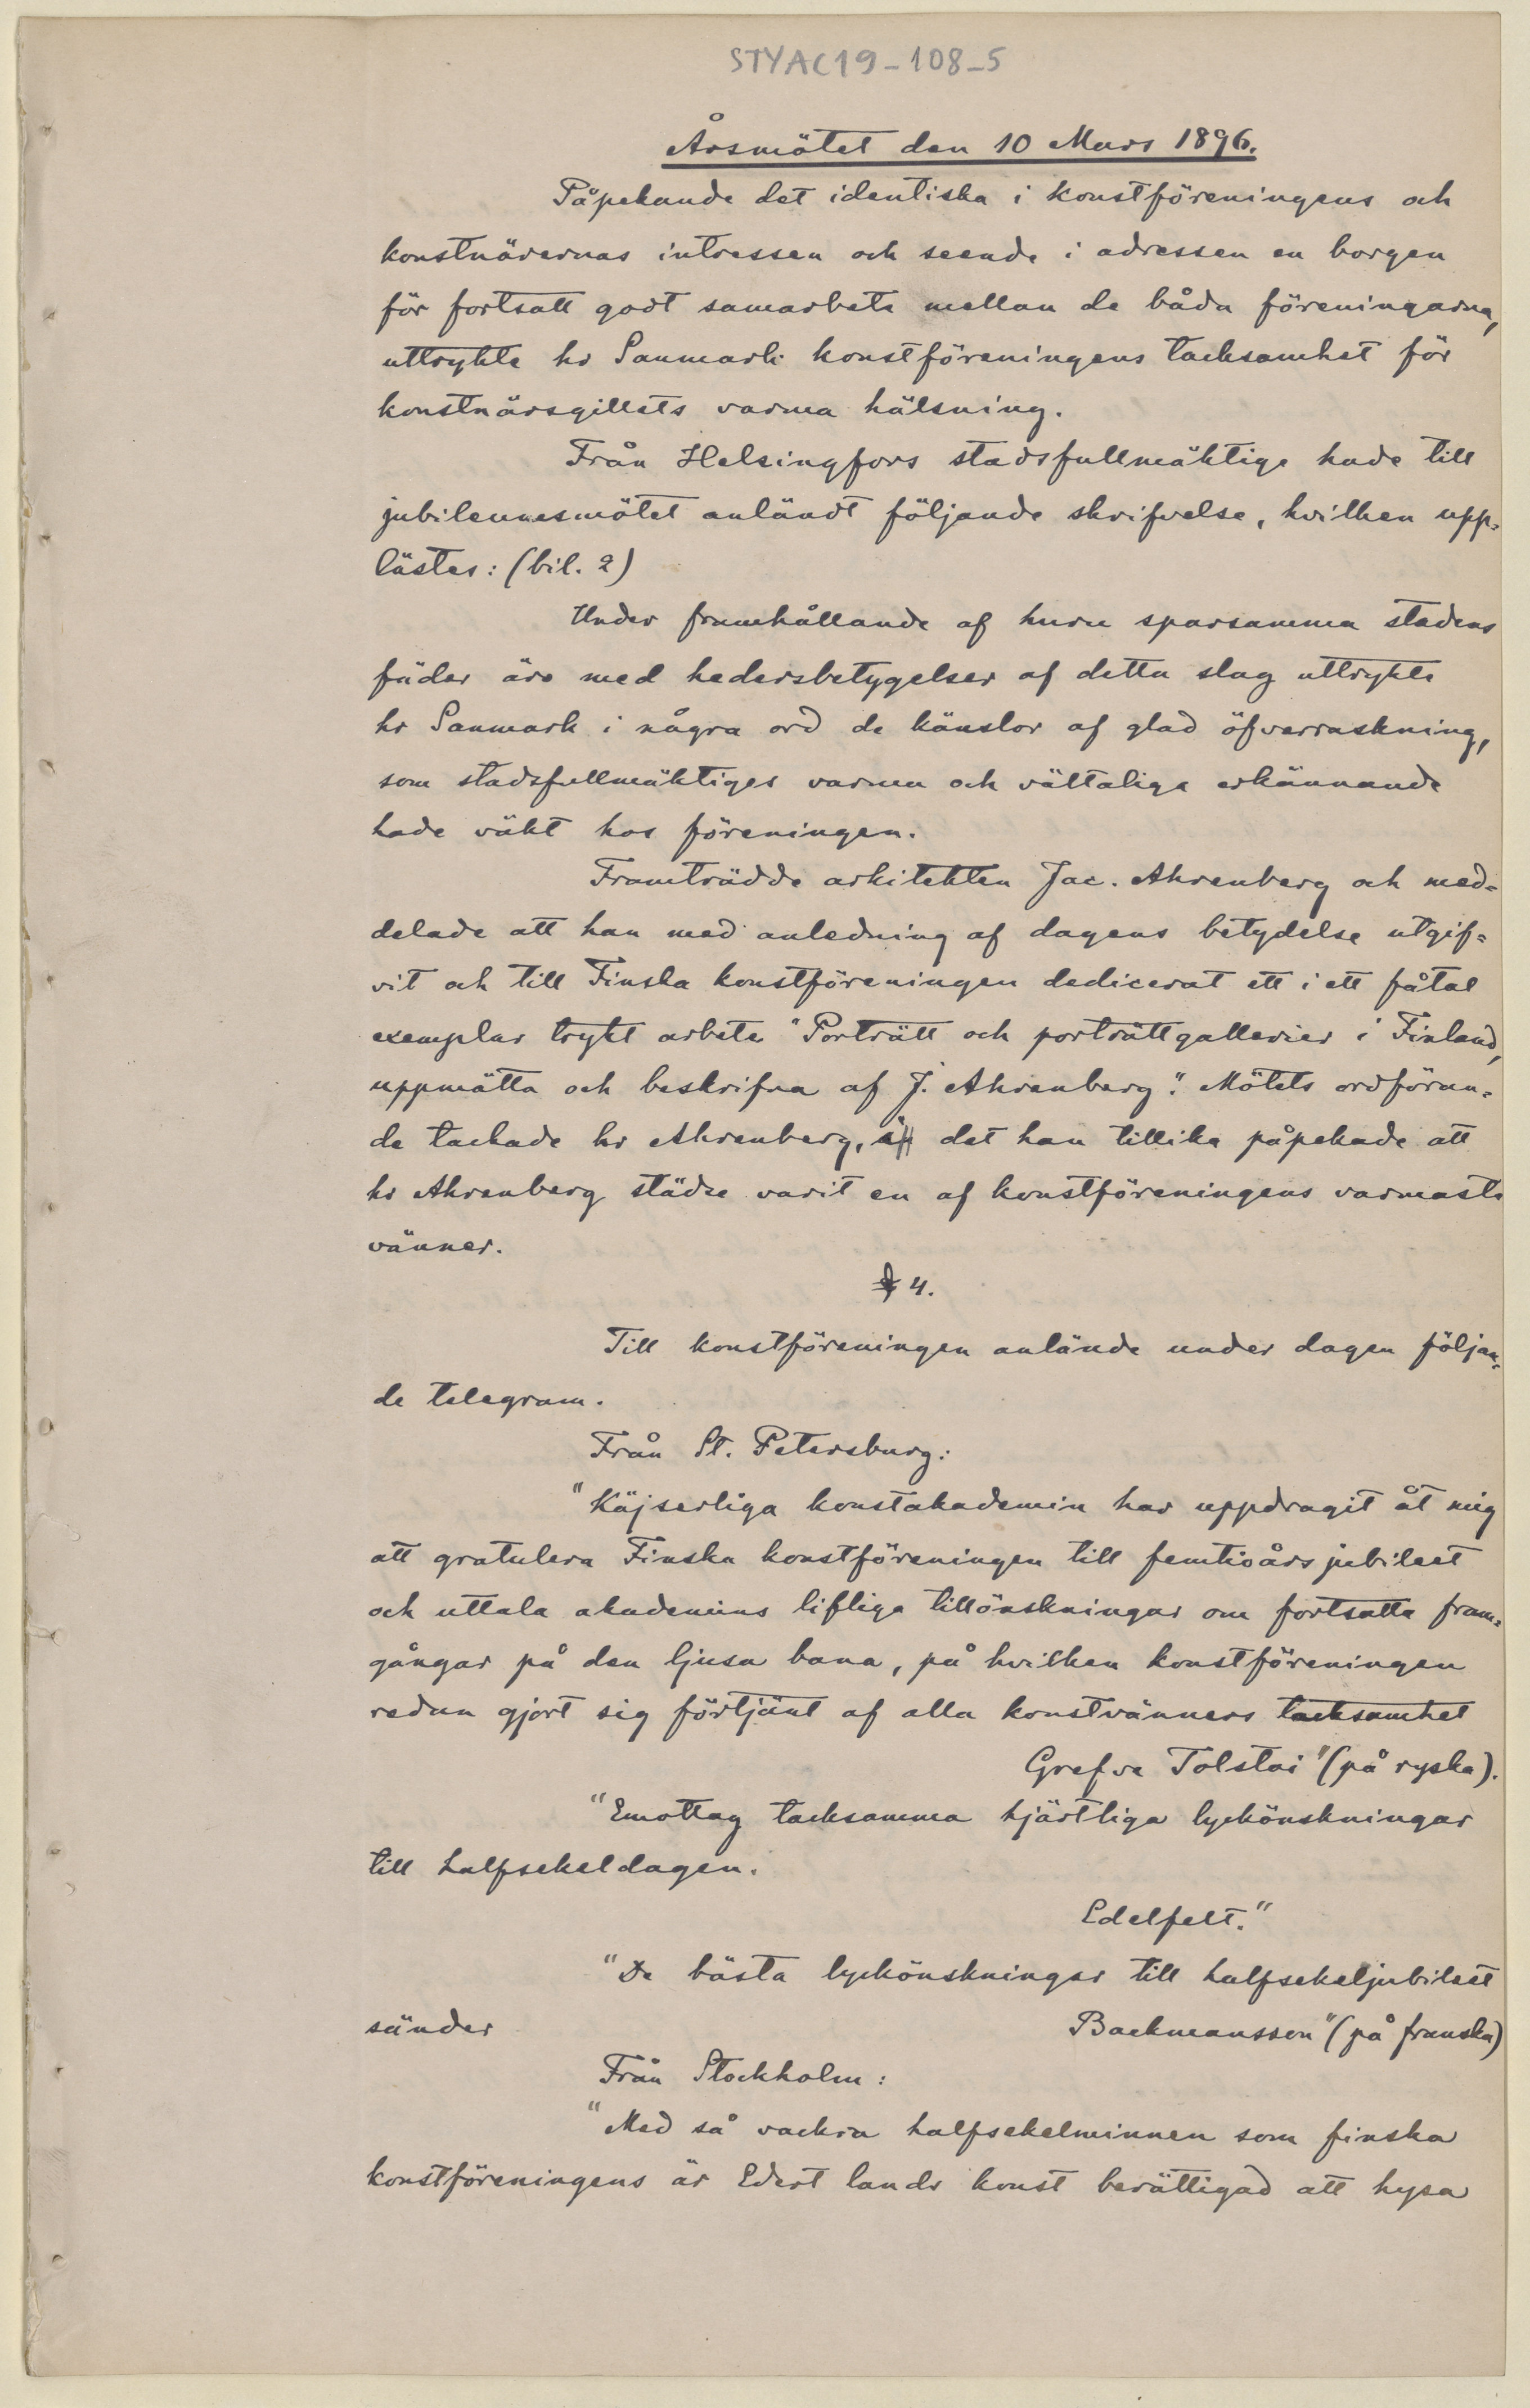 STYAC19-108-5
Årsmötet den 10 Mars 1896.
Påpekande det identiska i konstföreningens och
konstnärernas intressen och seende i adressen en borgen
för fortsatt godt samarbete mellan de båda föreningarna,
uttrykte hr Sanmark konstföreningens tacksamhet för
konstnärsgillets varma hälsning.
Från Helsingfors stadsfullmäktige hade till
jubileumsmötet anländt följande skrifvelse, hvilken upp-
lästes: (bil. 2)
Under framhållande af huru sparsamma stadens
fäder äro med hedersbetygelser af detta slag uttrykte
hr Sanmark i några ord de känslor af glad öfverraskning,
som stadsfullmäktiges varma och vältaliga erkännande
hade väkt hos föreningen.
Framträdde arkitekten Jac. Ahrenberg och med-
delade att han med anledning af dagens betydelse utgif-
vit och till Finska konstföreningen dedicerat ett i ett fåtal
exemplar trykt arbete "Porträtt och porträttgallerier i Finland,
uppmätta och beskrifna af J. Ahrenberg". Mötets ordföran-
de tackade hr Ahrenberg, i det han tillika påpekade att
hr Ahrenberg städse varit en af konstföreningens varmaste
vänner.
§ 4.
Till konstföreningen anlände under dagen följan-
de telegram.
Från St. Petersburg:
"Käjserliga konstakademin har uppdragit åt mig
att gratulera Finska konstföreningen till femtioårsjubileet
och uttala akademins lifliga tillönskningar om fortsatta fram-
gångar på den ljusa bana, på hvilken konstföreningen
redan gjort sig förtjänt af alla konstvänners tacksamhet
Grefve Tolstoi" (på ryska).
"Emottag tacksamma hjärtliga lyckönskningar
till halfsekeldagen.
Edelfelt."
"De bästa lyckönskningar till halfsekeljubileet
sänder Backmansson" (på franska)
Från Stockholm:
"Med så vackra halfsekelminnen som finska
konstföreningens är Edert lands konst berättigad att hysa